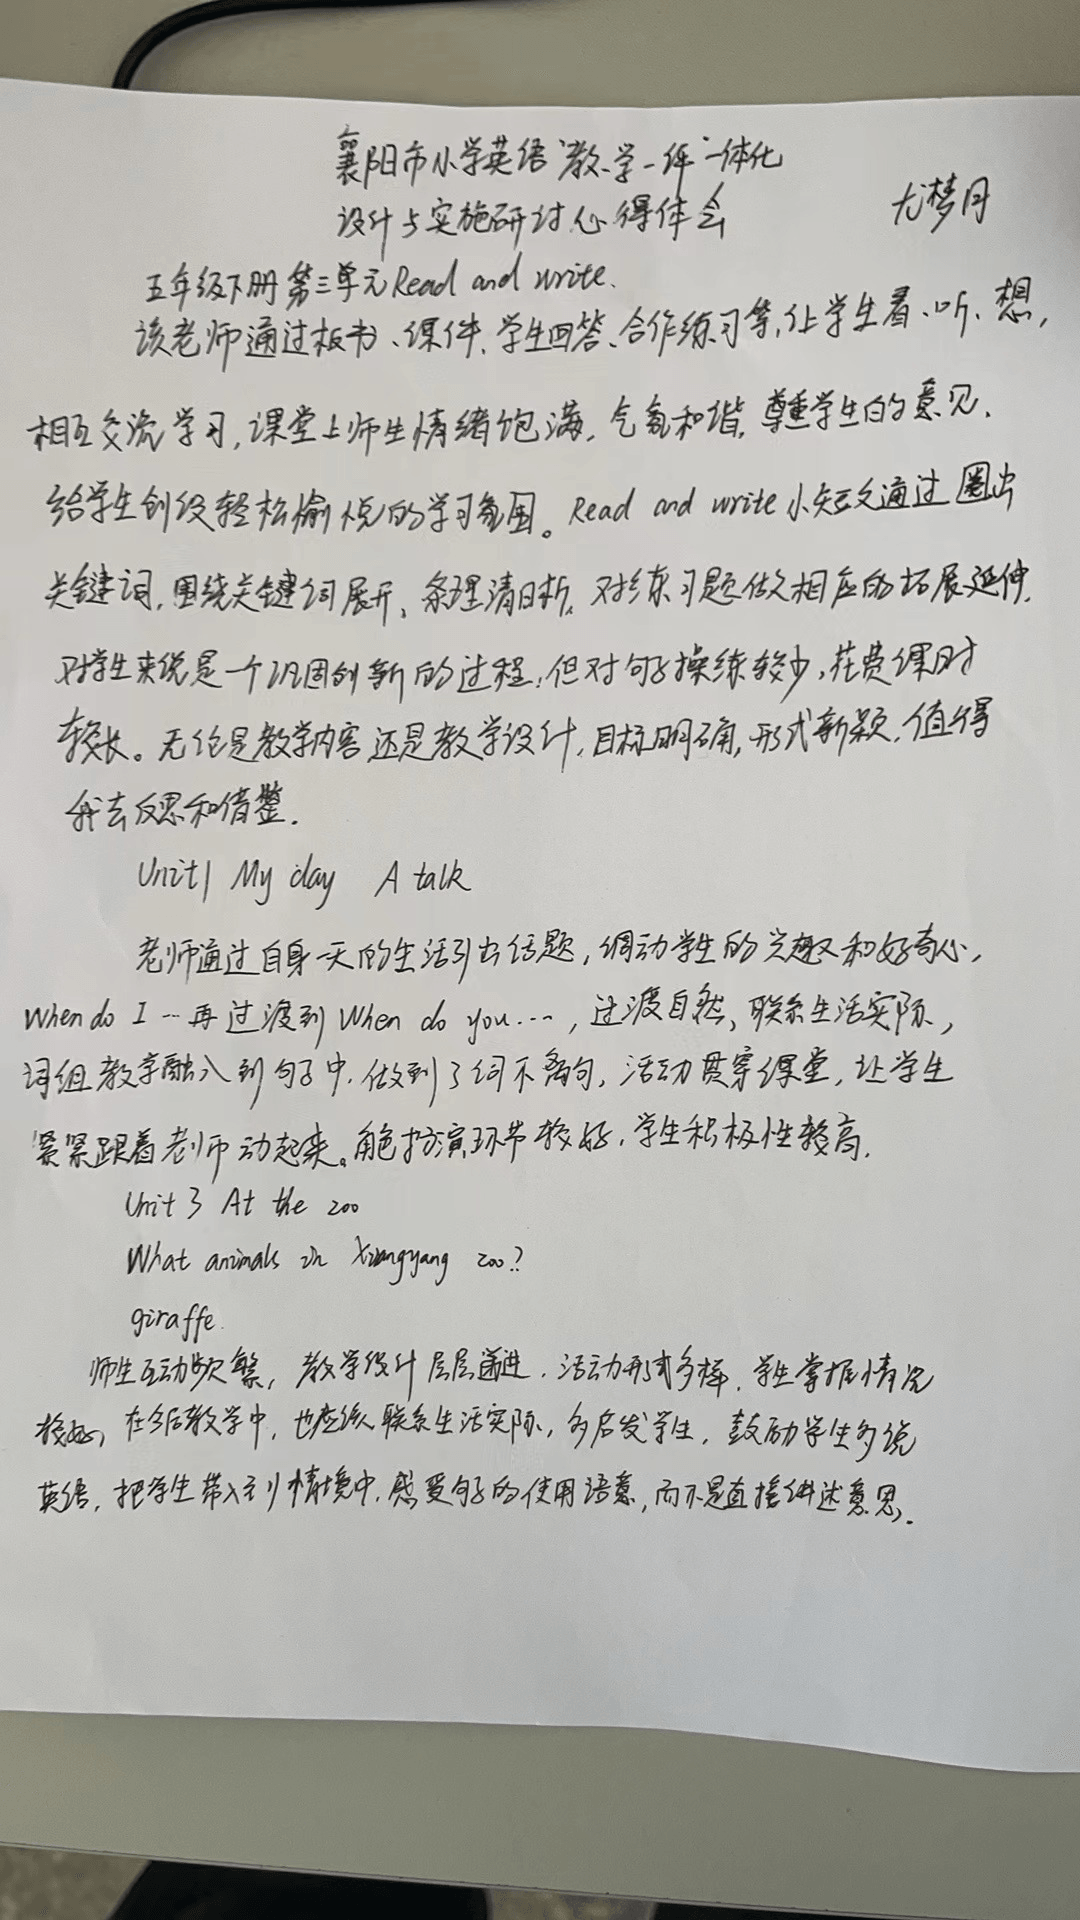 襄阳市小学英语“教-学-评”一体化
设计与实施研讨心得体会
尤梦月
五年级下册第三单元Read and write.
该老师通过板书、课件、学生回答、合作练习等,让学生看、听、想,
相互交流学习,课堂上师生情绪饱满,气氛和谐,尊重学生的意见,
给学生创设轻松愉悦的学习氛围。Read and write小短文通过圈出
关键词,围绕关键词展开、条理清晰,对练习题做相应的拓展延伸,
对学生来说是一个巩固创新的过程,但对句子操练较少,花费课时
较长。无论是教学内容还是教学设计,目标明确,形式新颖,值得
我去反思和借鉴.
Unit1 My day A talk
老师通过自身一天的生活引出话题,调动学生的兴趣和好奇心,
When do I …再过渡到When do you…,过渡自然、联系生活实际,
词组教学融入到句子中,做到了词不离句,活动贯穿课堂,让学生
紧紧跟着老师动起来。角色扮演环节较好,学生积极性较高.
Unit 3 At the zoo
What animals in Xiangyang zoo?
giraffe.
师生互动频繁,教学设计层层递进,活动形式多样,学生掌握情况
较好,在今后教学中,也应该联系生活实际,多启发学生,鼓励学生多说
英语,把学生带入到情境中,感受句子的使用语意,而不是直接讲述意思.